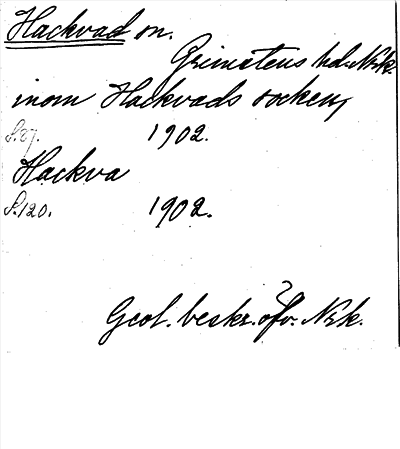 Hackvad sn.
Grimstens hd. Nrk.
inom Hackvads socken,
S.87. 1902.
Hackva
S.120. 1902.
Geol. beskr. öfv. Nrk.